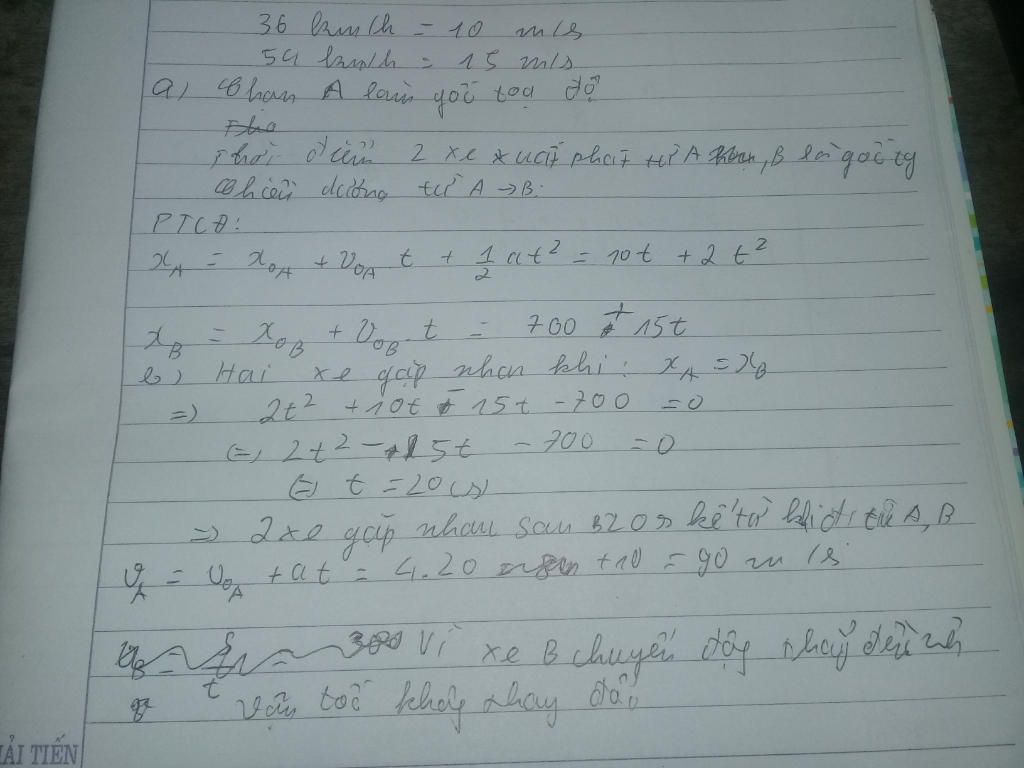 36 km/h = 10 m/s
54 km/h = 15 m/s
a, Chọn A làm gốc toạ độ
Thời điểm 2 xe xuất phát từ A, B là gốc tg
Chiều dương từ A → B.
PTCĐ:
x_A = x_0A + v_0A t + 1/2 at² = 10t + 2t²
x_B = x_0B + v_0B.t = 700 + 15t
b, Hai xe gặp nhau khi: x_A = x_B
=> 2t² + 10t - 15t - 700 = 0
(=) 2t² - 5t - 700 = 0
(=) t = 20(s)
=> 2 xe gặp nhau sau 20s kể từ khi đi từ A, B
v_A = v_0A + at = 4.20 + 10 = 90 m/s
Vì xe B chuyển động thẳng đều nên
vận tốc không thay đổi
ẢI TIẾN